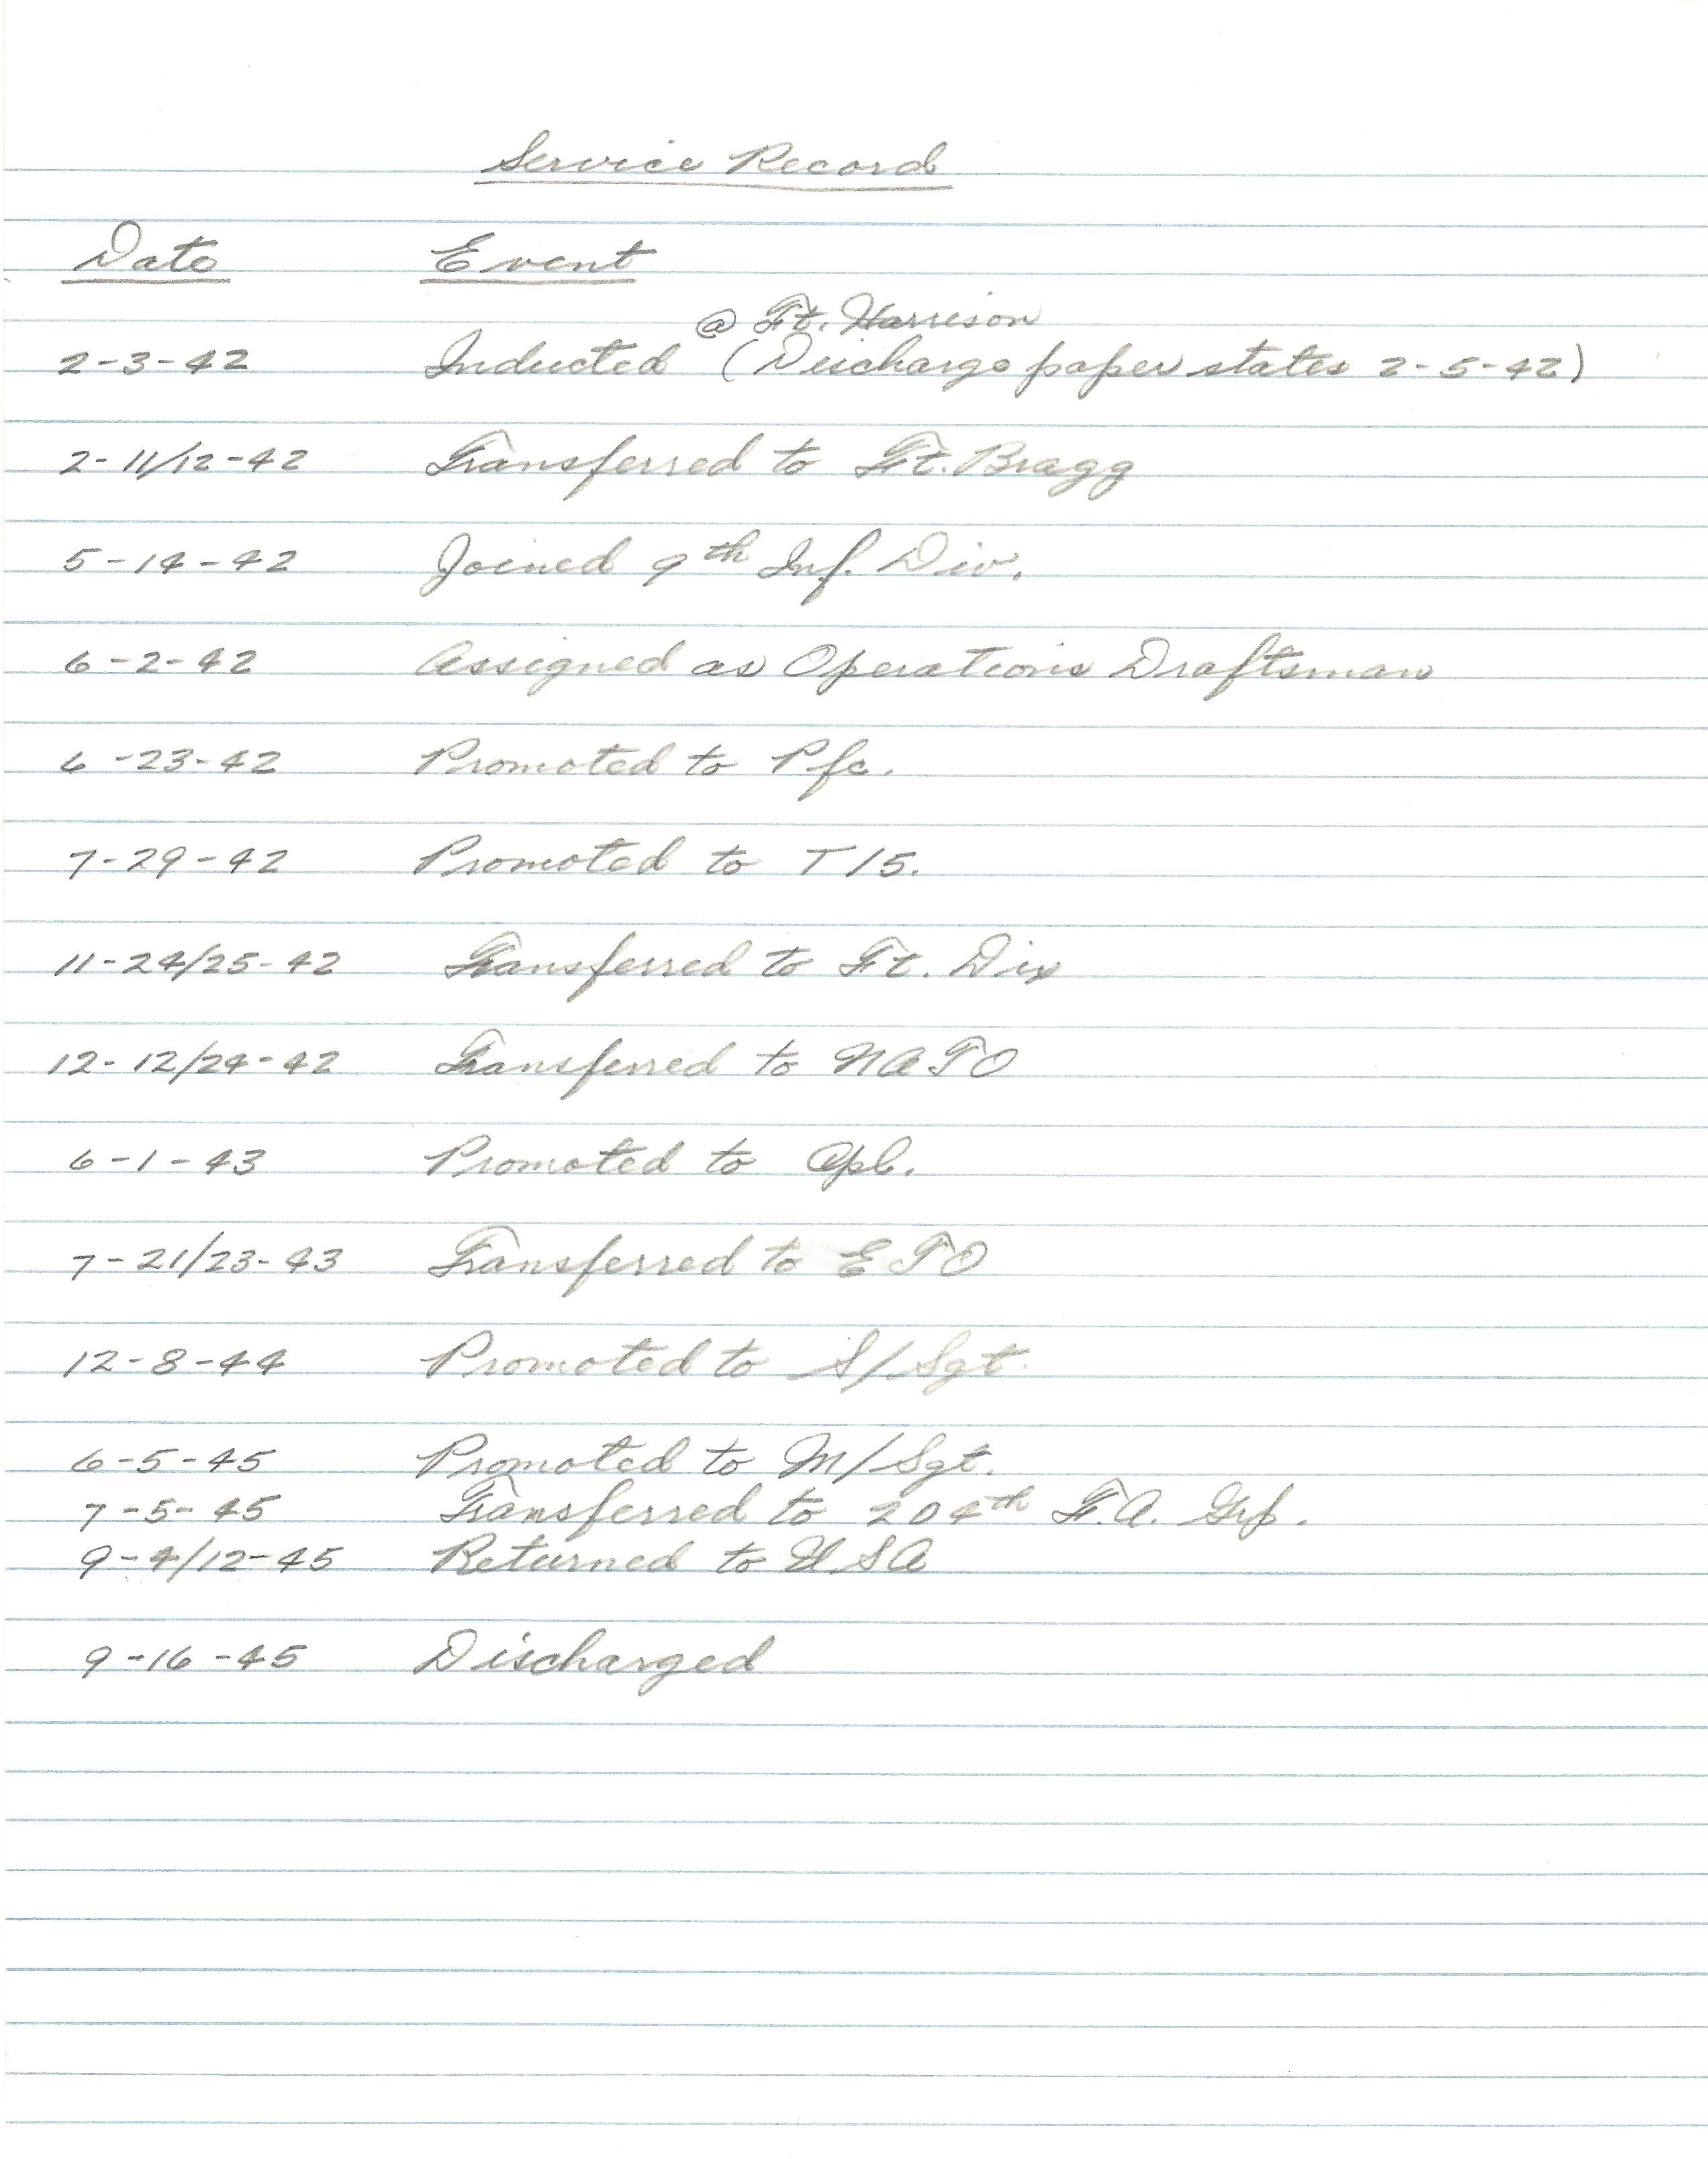 Service Record
Date Event
@ Ft. Harrison
2-3-42 Inducted (Discharge paper states 2-5-42)
2-11/12-42 Transferred to Ft. Bragg
5-14-42 Joined 9th Inf. Div.
6-2-42 Assigned as Operations Draftsman
6-23-42 Promoted to Pfc.
7-29-42 Promoted to T/5.
11-24/25-42 Transferred to Ft. Dix
12-12/24-42 Transferred to NATO
6-1-43 Promoted to Cpl.
7-21/23-43 Transferred to ETO
12-8-44 Promoted to S/Sgt.
6-5-45 Promoted to M/Sgt.
7-5-45 Transferred to 204th F.A. Grp.
9-4/12-45 Returned to USA
9-16-45 Discharged